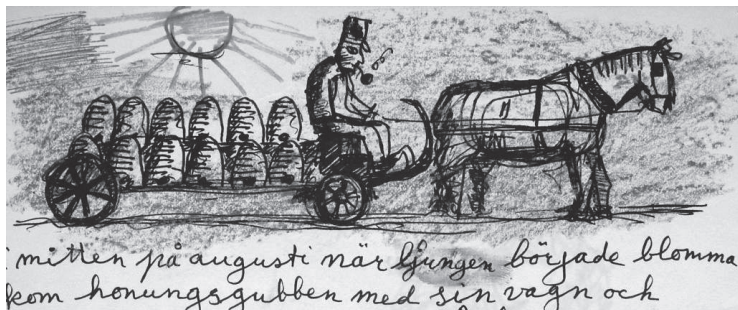 i mitten på augusti när ljungen började blomma
kom honungsgubben med sin vagn och